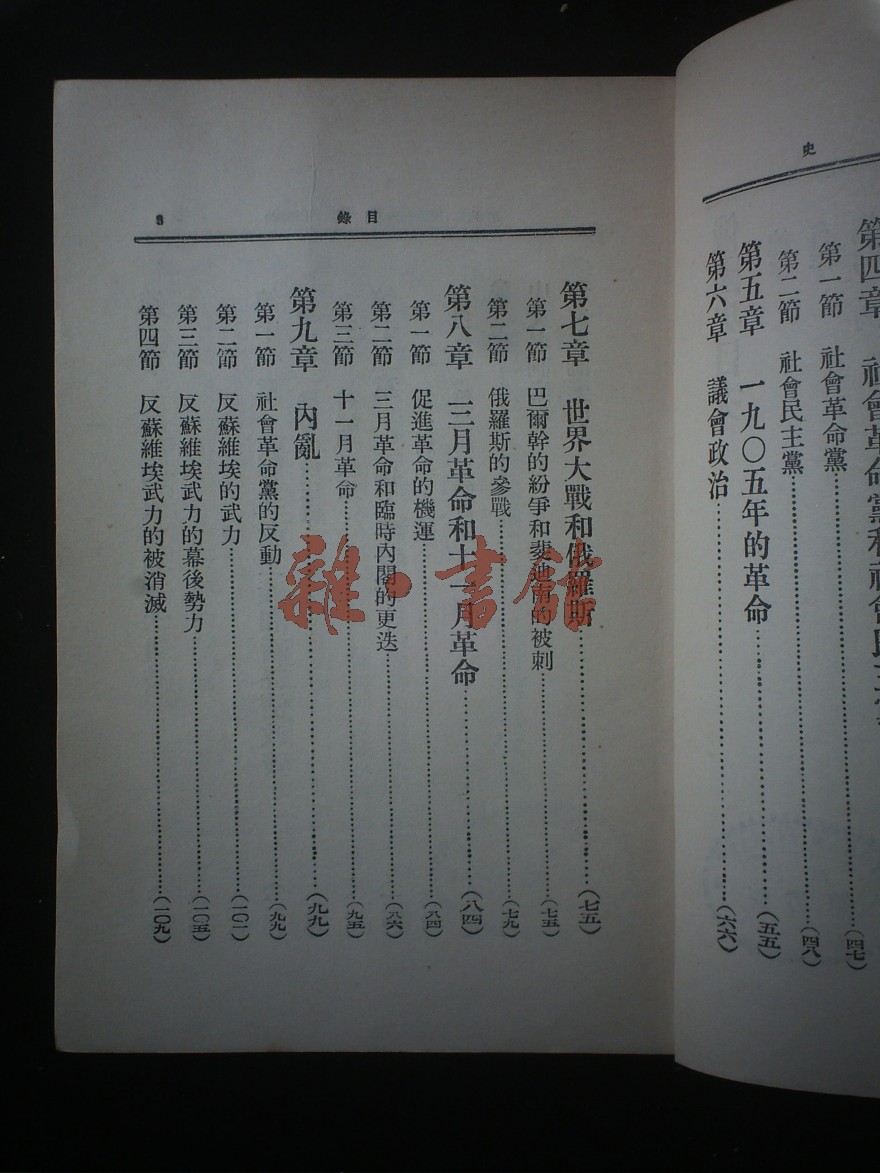 史
第四章 社會革命黨和社會民主
第一節 社會革命黨……(四七)
第二節 社會民主黨……(四八)
第五章 一九〇五年的革命……(五五)
第六章 議會政治……(六六)
目錄
3
第七章 世界大戰和俄羅斯……(七五)
第一節 巴爾幹的紛爭和斐迪南的被刺……(七五)
第二節 俄羅斯的參戰……(七九)
第八章 三月革命和十一月革命……(八四)
第一節 促進革命的機運……(八四)
第二節 三月革命和臨時內閣的更迭……(八六)
第三節 十一月革命……(九五)
第九章 內亂……(九九)
第一節 社會革命黨的反動……(九九)
第二節 反蘇維埃的武力……(一〇一)
第三節 反蘇維埃武力的幕後勢力……(一〇五)
第四節 反蘇維埃武力的被消滅……(一〇九)
雜·書館